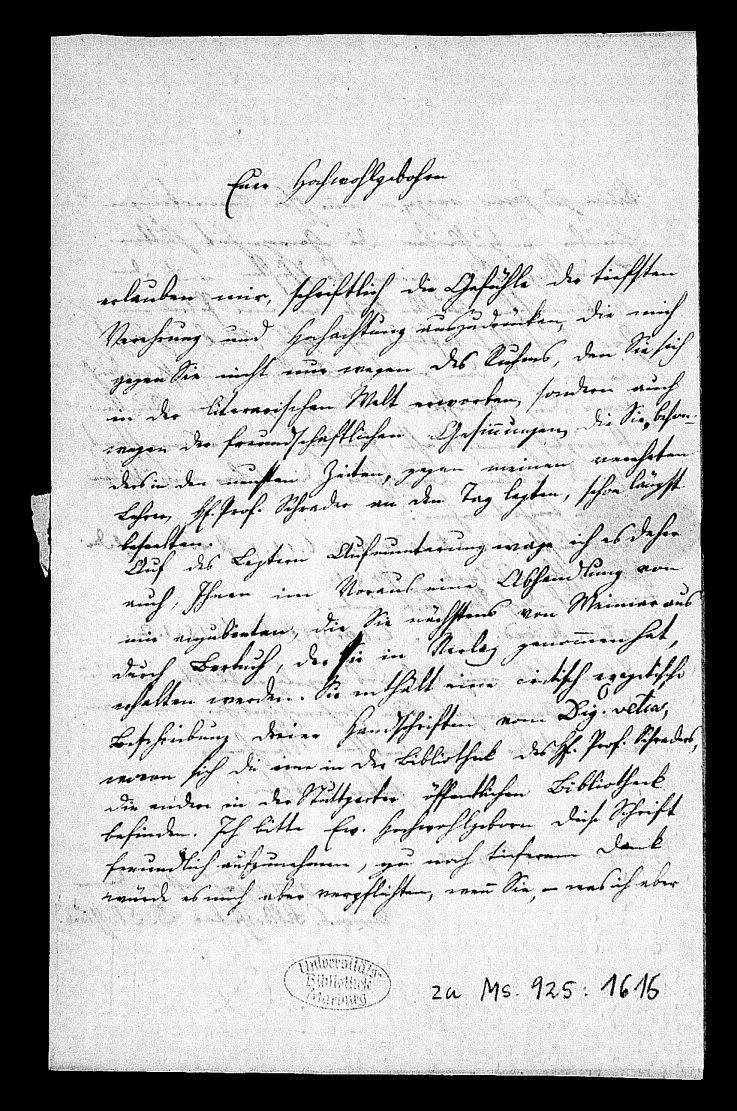 Euer Hochwohlgebohren
erlauben mir, schriftlich die Gefühle der tiefsten
Verehrung und Hochachtung auszudrücken, die mich
gegen Sie nicht nur wegen des Ruhms, den Sie sich
in der literarischen Welt erworben, sondern auch
wegen der freundschaftlichen Gesinnungen, die Sie, beson-
ders in den neusten Zeiten, gegen meinen verehrten
Lehrer, H. Prof. Schrader an den Tag legten, schon längst
beseelten.
Auf des Leztern Aufmunterung wage ich es daher
auch, Ihnen im Voraus eine Abhandlung von
mir anzubieten, die Sie nächstens von Weimar aus
durch Bertuch, der sie in Verlag genommen hat,
erhalten werden. Sie enthält eine critisch exegetische
Beschreibung dreier Handschriften vom Dig. vetus,
wovon sich die eine in der Bibliothek des H. Prof. Schraders,
die andere in der Stuttgarter öffentlichen Bibliotheck
befinden. Ich bitte Ew. Hochwohlgeborn diese Schrift
freundlich aufzunehmen, zu noch tieferem Dank
würde es mich aber verpflichten, wenn Sie, – was ich aber
Universitäts-
Bibliothek
Marburg
za Ms. 925: 1616